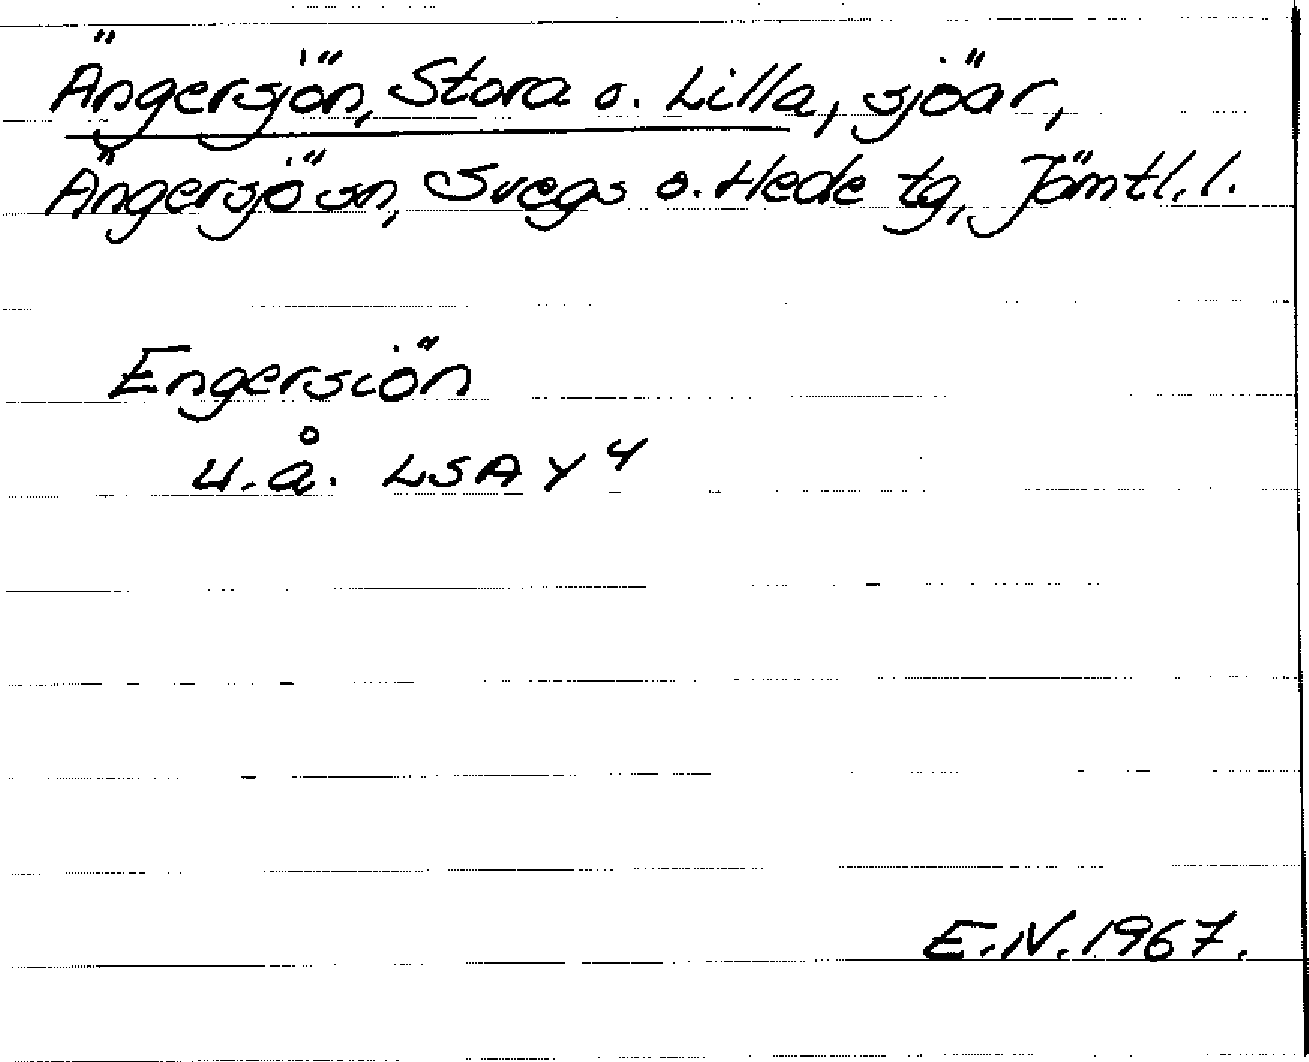 Ängersjön, Stora o. Lilla, sjöar,
Ängersjö sn, Svegs o. Hede tg, Jämtl. l.
Engersiön
u.å. LSA Y 4
E.N. 1967.